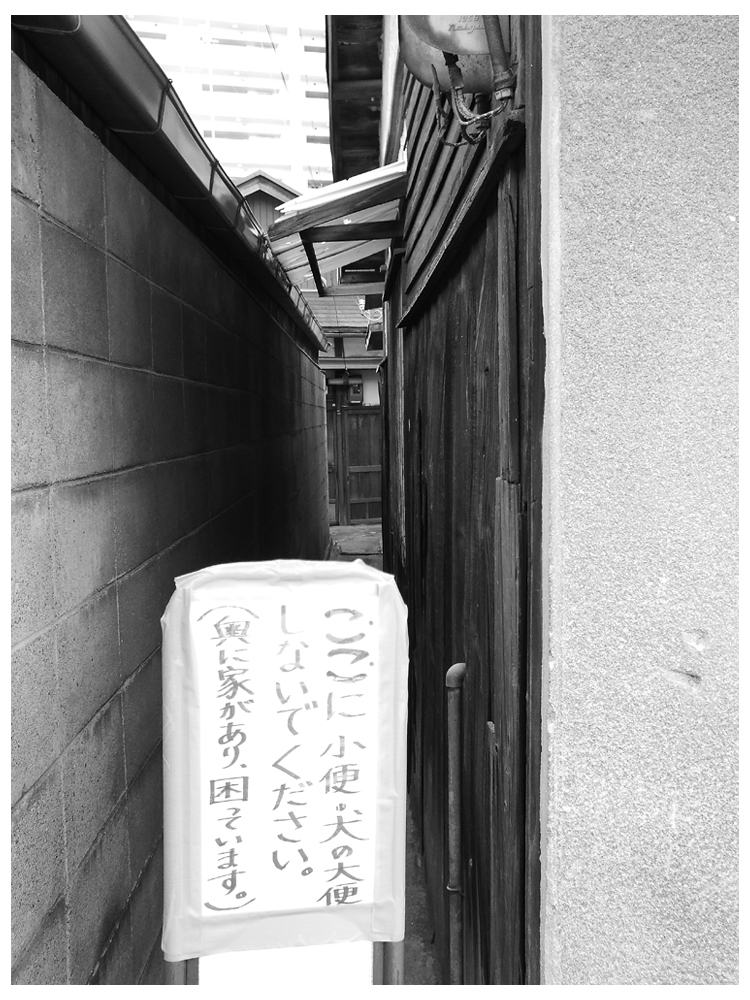 ここに小便・犬の大便
しないでください。
(奥に家があり、困っています。)